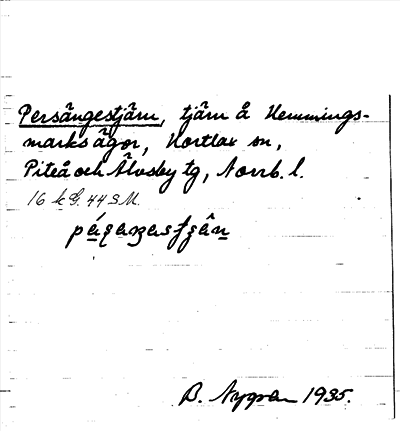 Persängestjärn, tjärn å Hemmings-
marks ägor, Hortlax sn,
Piteå och Älvsby tg, Norrb. l.
16 k G. 44 S M.
B. Nygren 1935.